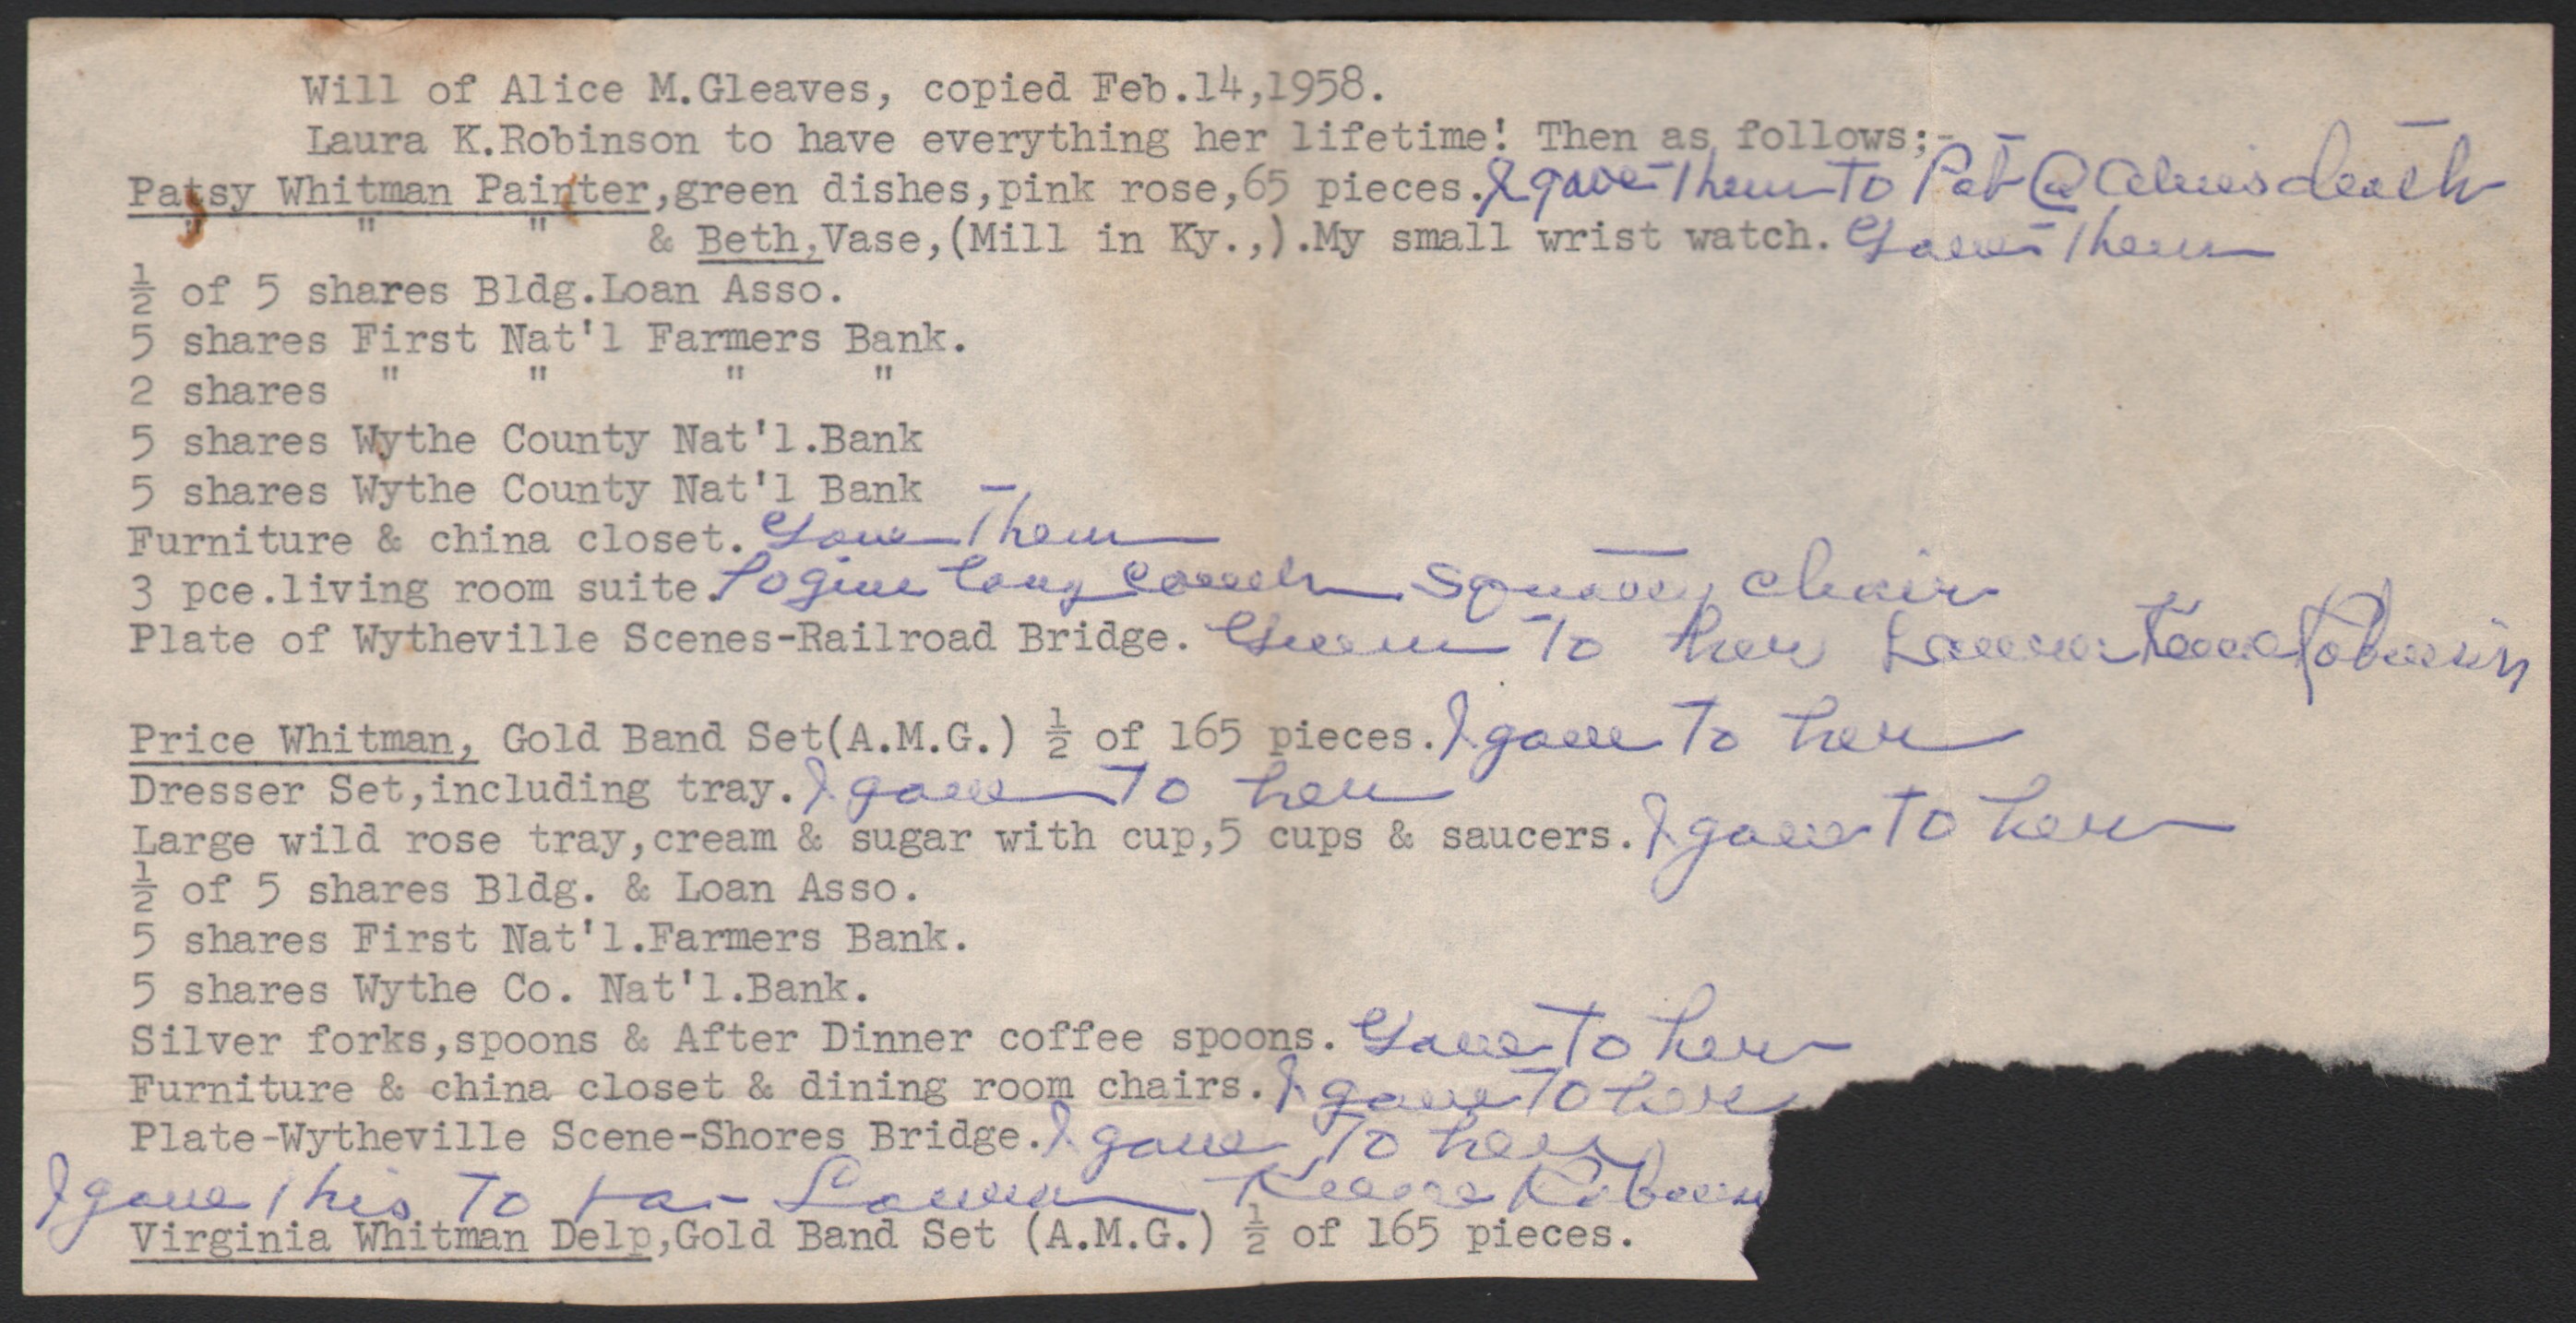 Will of Alice M.Gleaves, copied Feb.14,1958.
Laura K.Robinson to have everything her lifetime! Then as follows;-
Patsy Whitman Painter,green dishes,pink rose,65 pieces. I gave them to Pat @ Alice's death
" " " & Beth,Vase,(Mill in Ky.,).My small wrist watch. Gave them
½ of 5 shares Bldg.Loan Asso.
5 shares First Nat'l Farmers Bank.
2 shares " " " "
5 shares Wythe County Nat'l.Bank
5 shares Wythe County Nat'l Bank
Furniture & china closet. Gave them
3 pce.living room suite. To give long couch chair
Plate of Wytheville Scenes-Railroad Bridge. Given to her Laura Robinson
Price Whitman, Gold Band Set(A.M.G.) ½ of 165 pieces. I gave to her
Dresser Set,including tray. I gave to her
Large wild rose tray,cream & sugar with cup,5 cups & saucers. I gave to her
½ of 5 shares Bldg. & Loan Asso.
5 shares First Nat'l.Farmers Bank.
5 shares Wythe Co. Nat'l.Bank.
Silver forks,spoons & After Dinner coffee spoons. Gave to her
Furniture & china closet & dining room chairs. I gave to her
Plate-Wytheville Scene-Shores Bridge. I gave to her
I gave this to Laura
Virginia Whitman Delp,Gold Band Set (A.M.G.) ½ of 165 pieces.